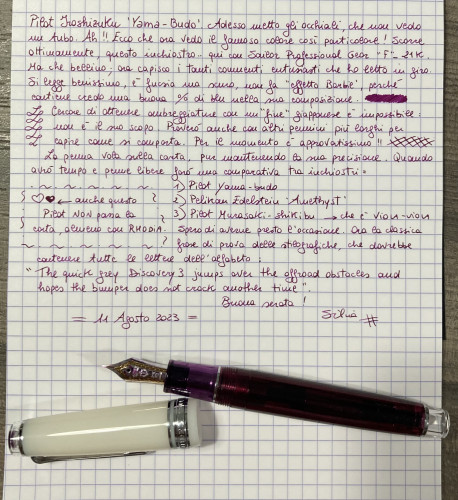 Pilot Iroshizuku 'Yama-Budo'. Adesso metto gli occhiali, che non vedo
un tubo. Ah!! Ecco che ora vedo il famoso colore così particolare! Scorre
ottimamente, questo inchiostro, qui con Sailor Professional Gear "F" - 21K.
Ma che bellino: ora capisco i tanti commenti entusiasti che ho letto in giro.
Si legge benissimo, è fucsia ma scuro, non fa "effetto Barbie", perché
contiene credo una buona % di blu nella sua composizione.
Cercare di ottenere ombreggiature con un "fine" giapponese è impossibile
non è il suo scopo. Proverò anche con altri pennini più larghi per
capire come si comporta. Per il momento è approvatissimo!!
La penna vola sulla carta, pur mantenendo la sua precisione. Quando
avrò tempo e penne libere farò una comparativa tra inchiostri:
1) Pilot Yama-budo
← anche questo 2) Pelikan Edelstein 'Amethyst'
Pilot NON passa la 3) Pilot Murasaki-shikibu → che è viola-viola
carta, almeno con RHODIA. Spero di averne presto l'occasione. Ora la classica
frase di prova delle stilografiche, che dovrebbe
contenere tutte le lettere dell'alfabeto:
"The quick grey Discovery 3 jumps over the offroad obstacles and
hopes the bumper does not crack another time".
Buona serata!
= 11 Agosto 2023 = Silvia #